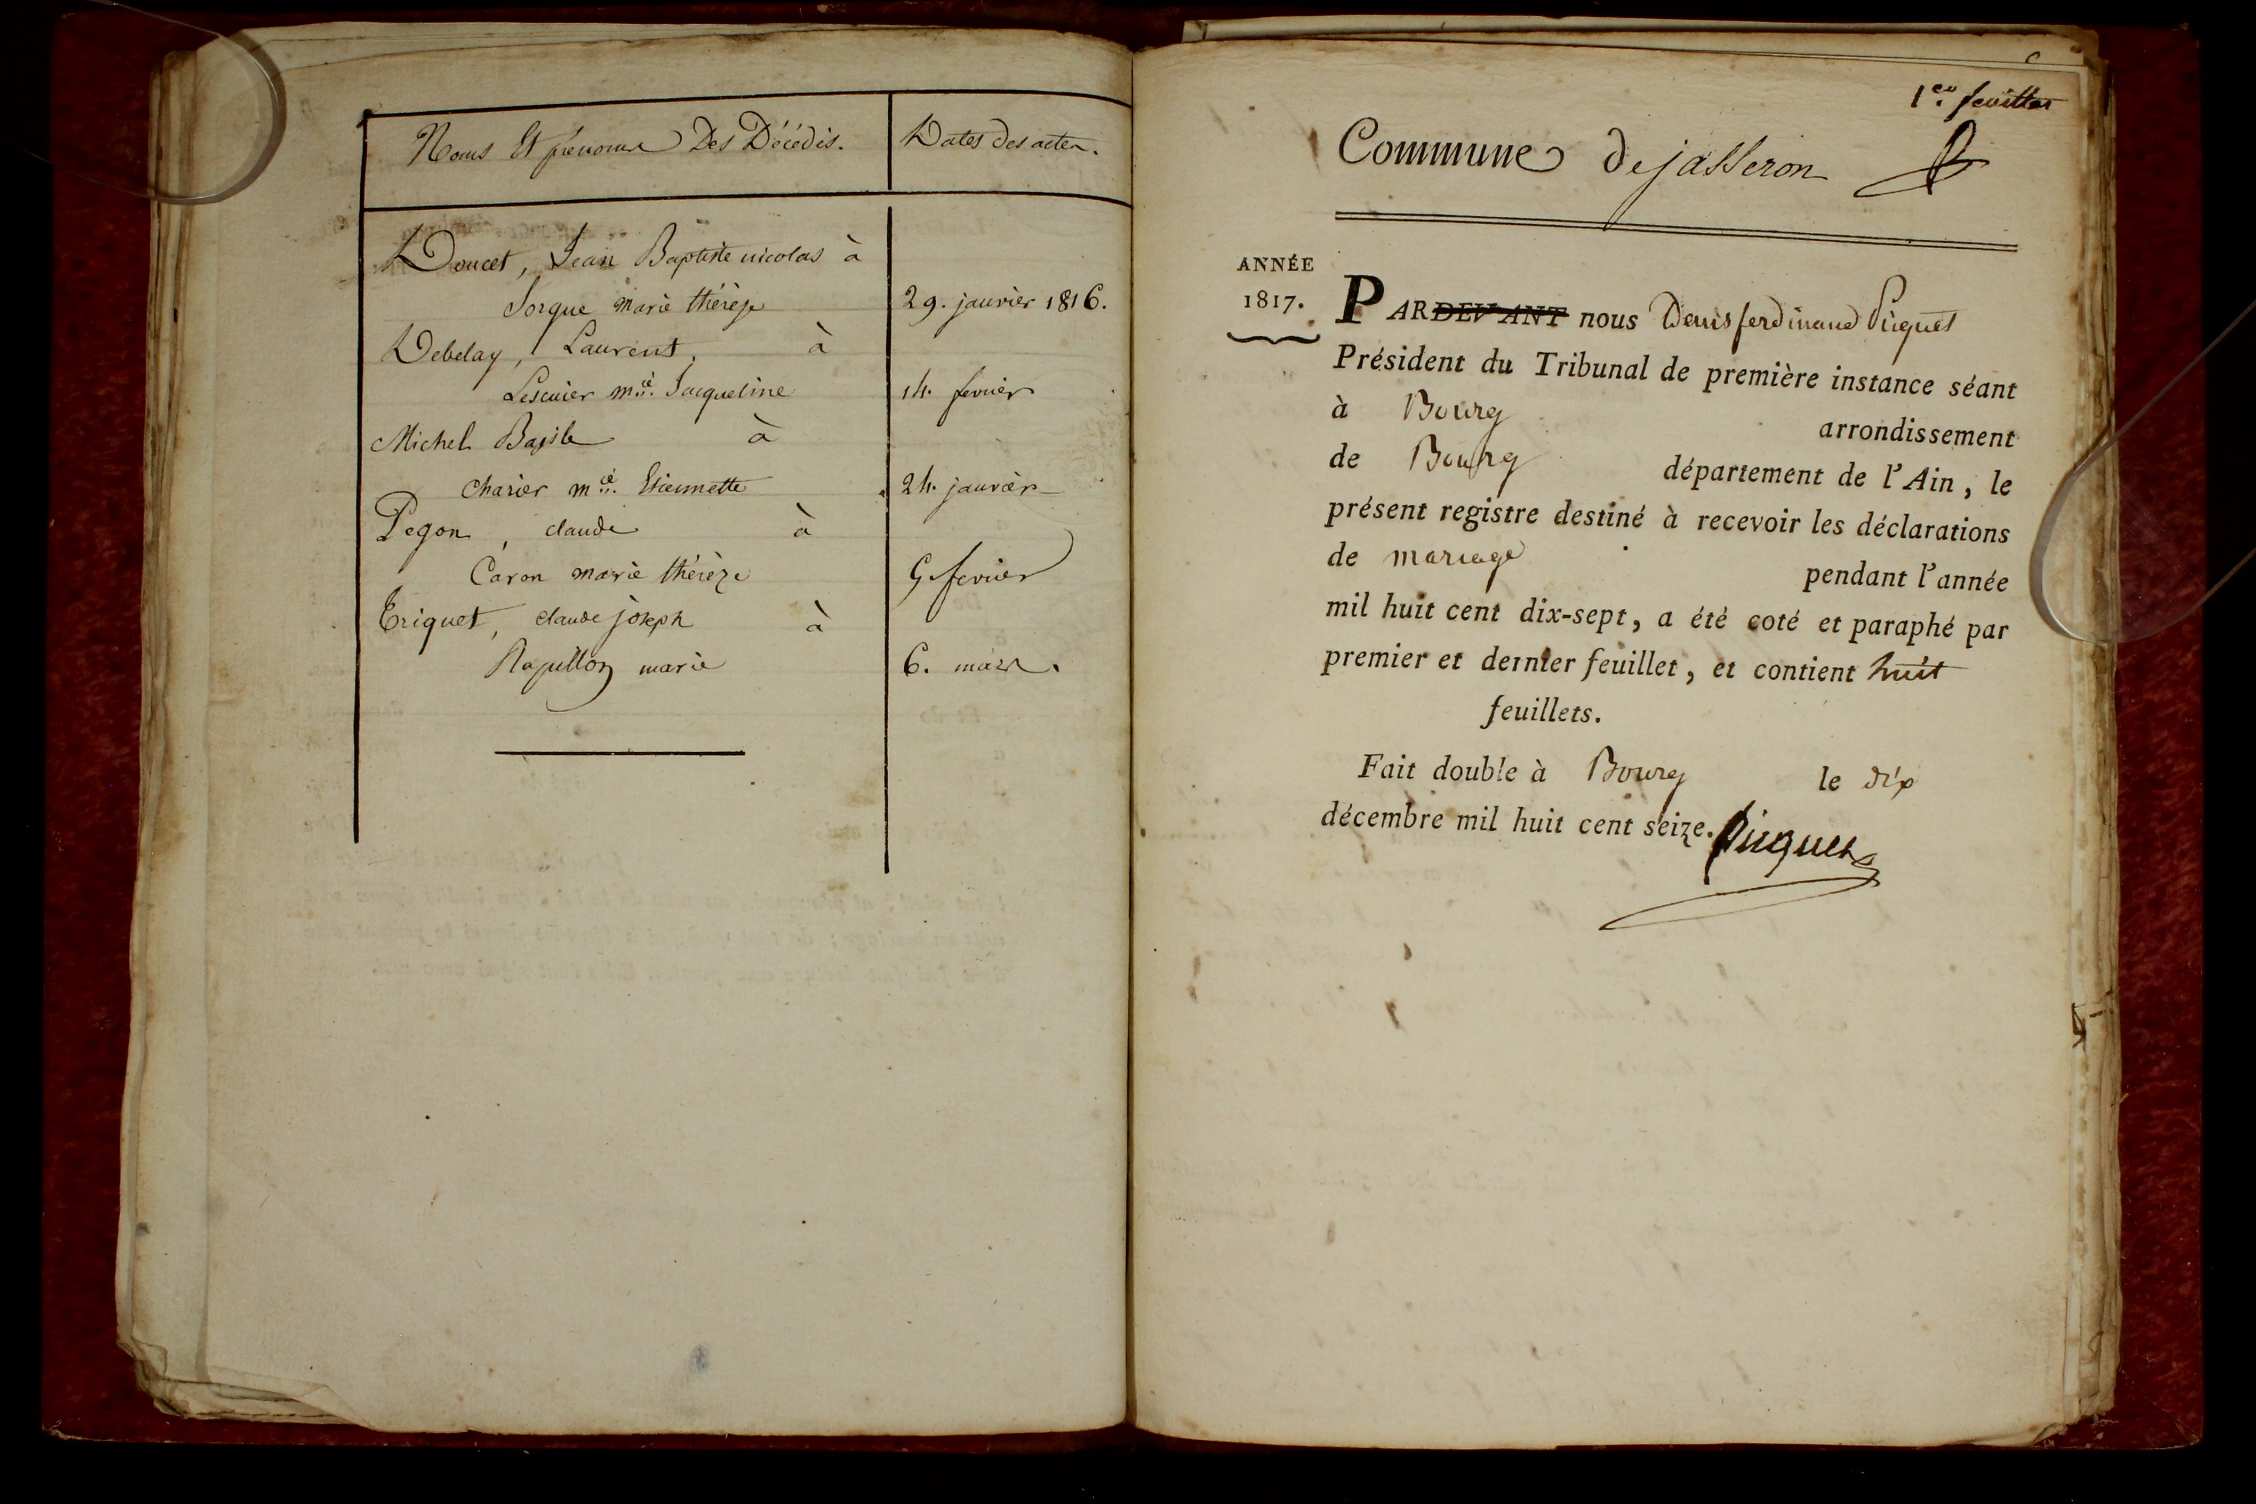 Noms Et prénoms Des Décédés.
Dates des actes.
Doucet, Jean Baptiste nicolas à
Sorgue marie thérèse
29. janvier 1816.
Debelay, Laurent, à
Lescuier m.ie Jacqueline
14. fevrier
Michel Basile à
charier m.ie Etiennette
24. janvier
Pegon, claude à
Caron marie thérèze
5 fevrier
Triquet, claude joseph à
marie
6. mars.
1er feuillet
Commune de jasseron
ANNÉE
1817.
PARDEVANT nous Denis ferdinand Piquet
Président du Tribunal de première instance séant
à Bourg arrondissement
de Bourg département de l'Ain, le
présent registre destiné à recevoir les déclarations
de mariage pendant l'année
mil huit cent dix-sept, a été coté et paraphé par
premier et dernier feuillet, et contient huit
feuillets.
Fait double à Bourg le dix
décembre mil huit cent seize. Piquet